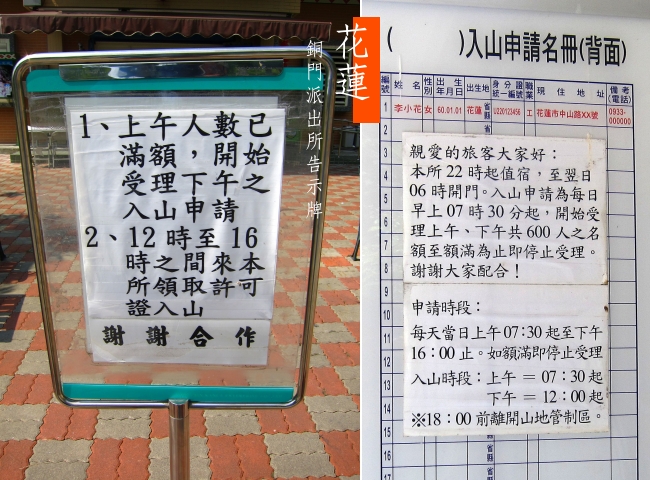 花蓮
銅門派出所告示牌
1、上午人數已
滿額，開始
受理下午之
入山申請
2、12時至16
時之間來本
所領取許可
證入山
謝謝合作
(　　　)入山申請名冊(背面)
編號 姓名 性別 出生年月日 出生地 身分證統一編號 職業 現住地址 備考(電話)
1 李小花 女 60.01.01 花蓮 省縣 U220123456 工 花蓮市中山路XX號 0933-000000
2
3
4
5
6
7
8
親愛的旅客大家好：
本所22時起值宿，至翌日
06時開門。入山申請為每日
早上07時30分起，開始受
理上午、下午共600人之名
額至額滿為止即停止受理。
謝謝大家配合！
9
10
11
12
13
14
15 省縣
16 省縣
17
申請時段：
每天當日上午07:30起至下午
16:00止。如額滿即停止受理
入山時段：上午＝07:30起
下午＝12:00起
※18:00前離開山地管制區。